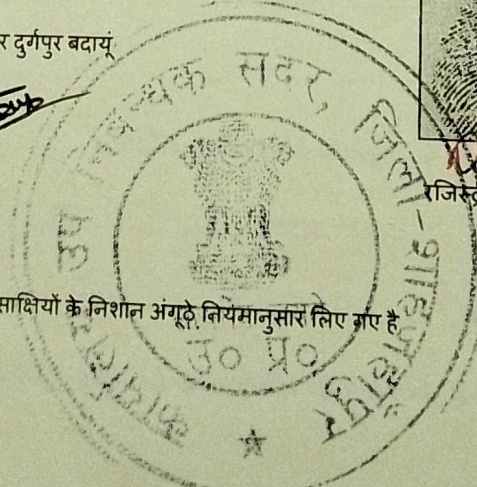 र दुर्गपुर बदायूं
कार्यालय उप निबन्धक सदर, जिला-शाहजहाँपुर
रजिस्ट्र
साक्षियों के निशान अंगूठे नियमानुसार लिए गए है
उ० प्र०